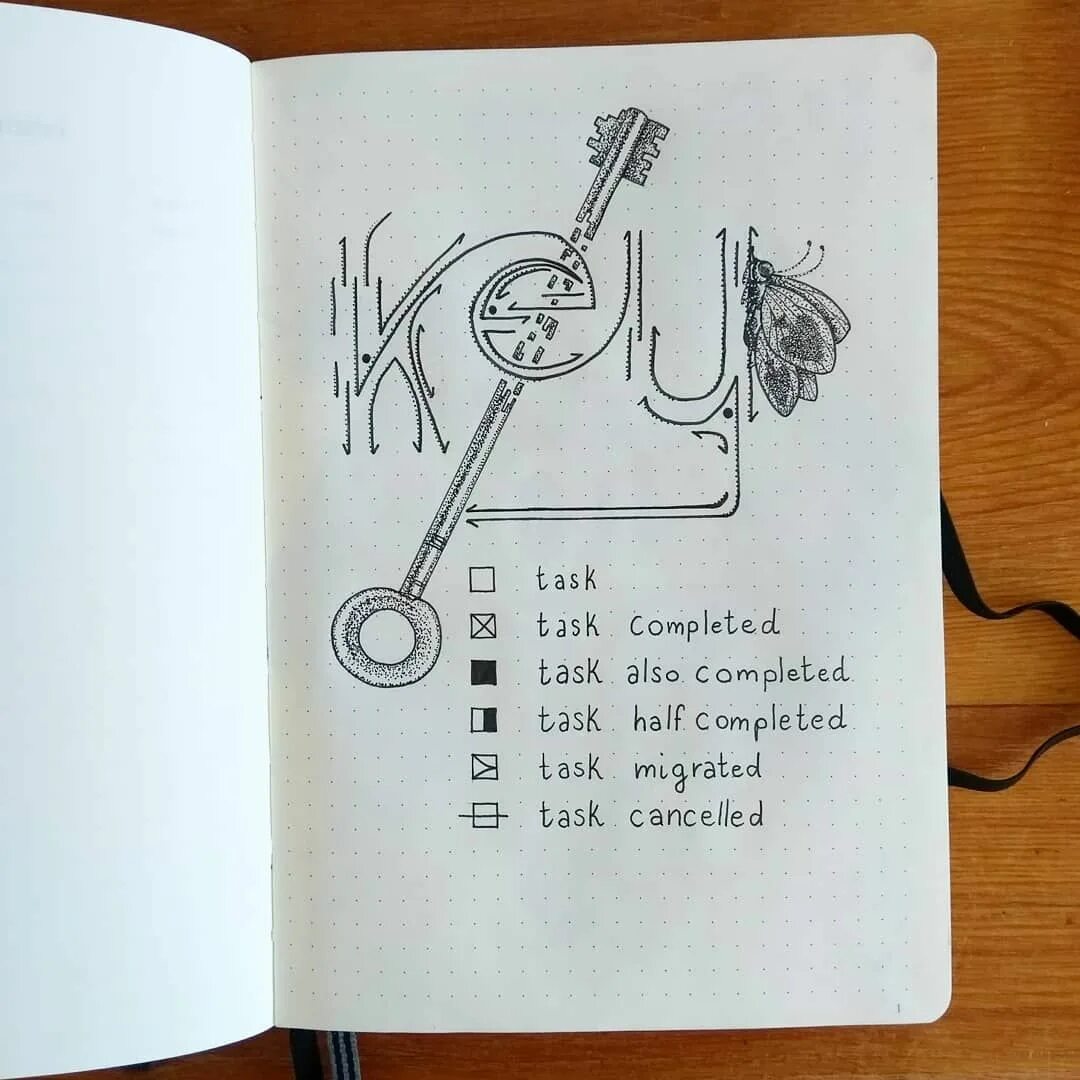 Key
task
task completed
task also completed
task half completed
task migrated
task cancelled
1